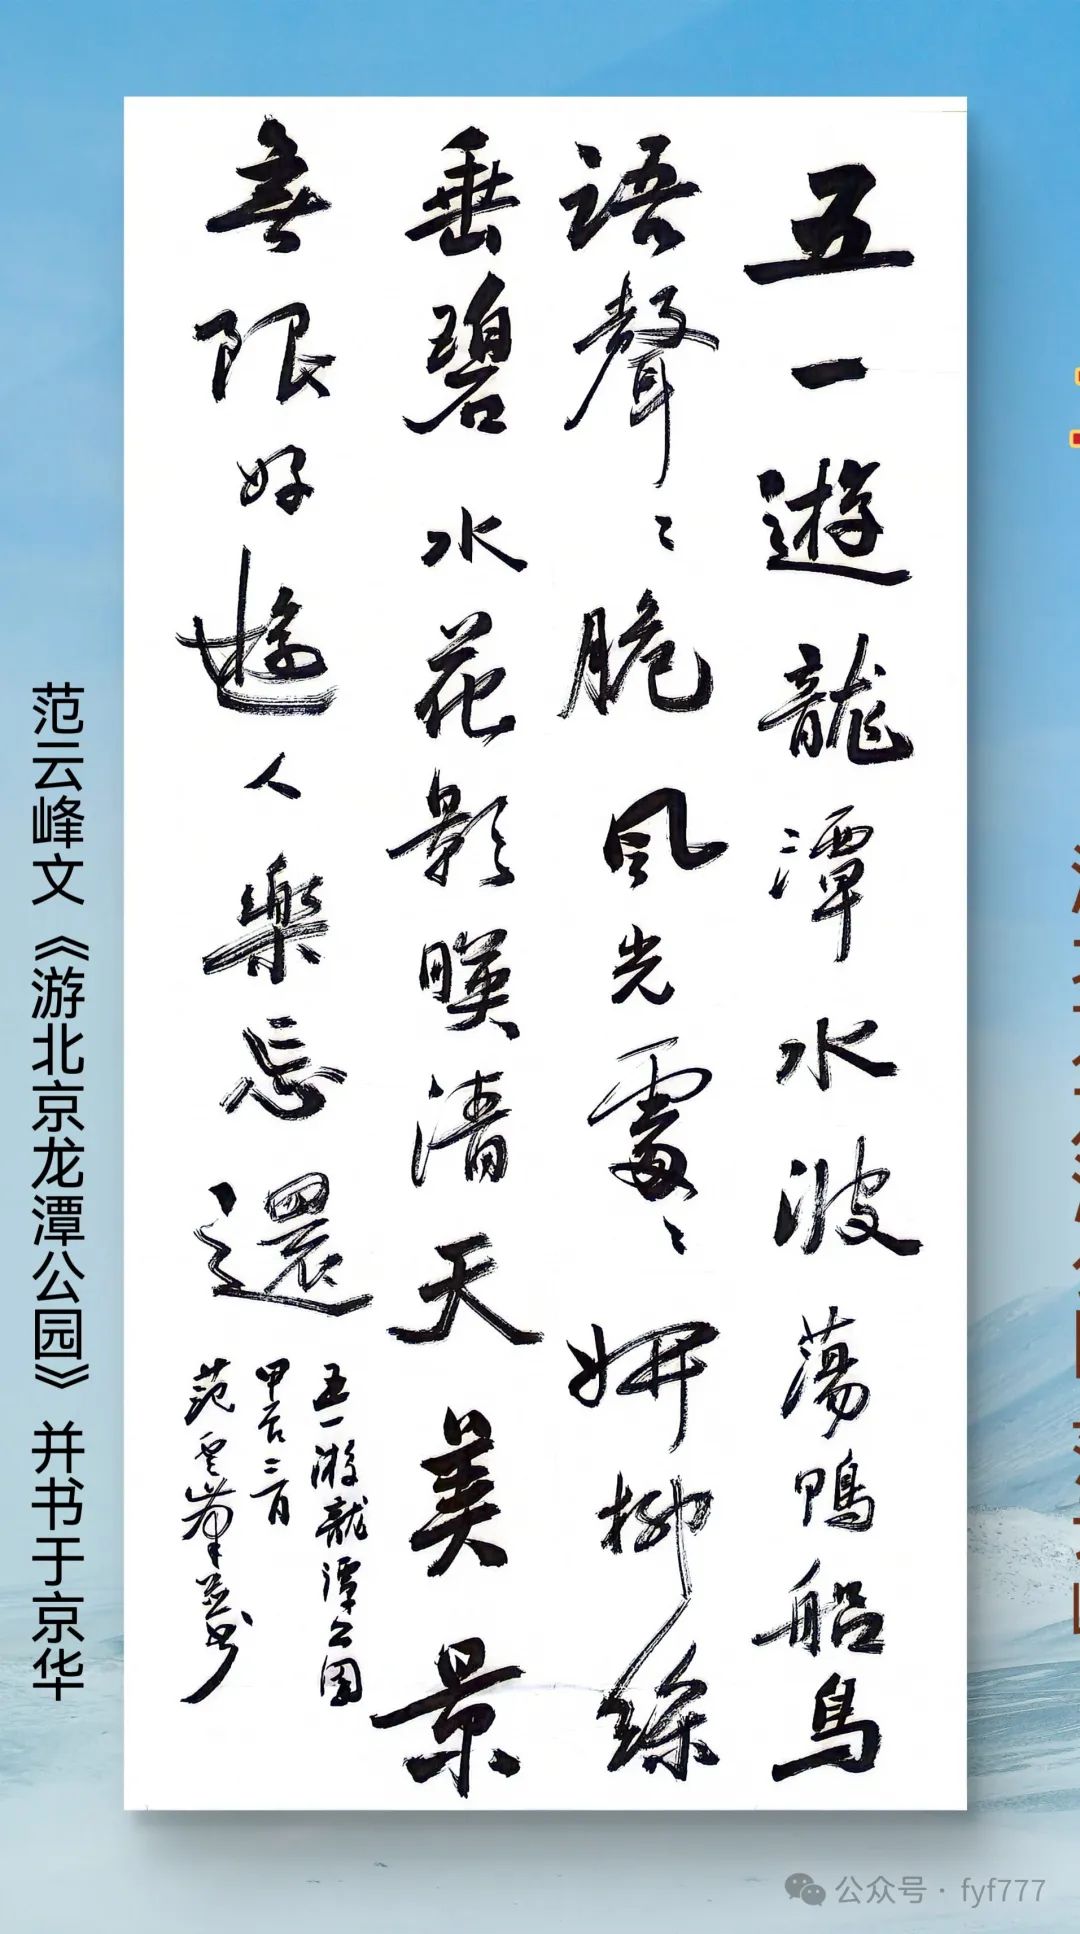 五一遊龍潭水波蕩鴨船鳥
語聲〻脆風光處〻妍柳絲
垂碧水花影映清天美景
無限好遊人樂忘還
五一游龍潭公園
范雲峰並書
范云峰文《游北京龙潭公园》并书于京华
公众号·fyf777